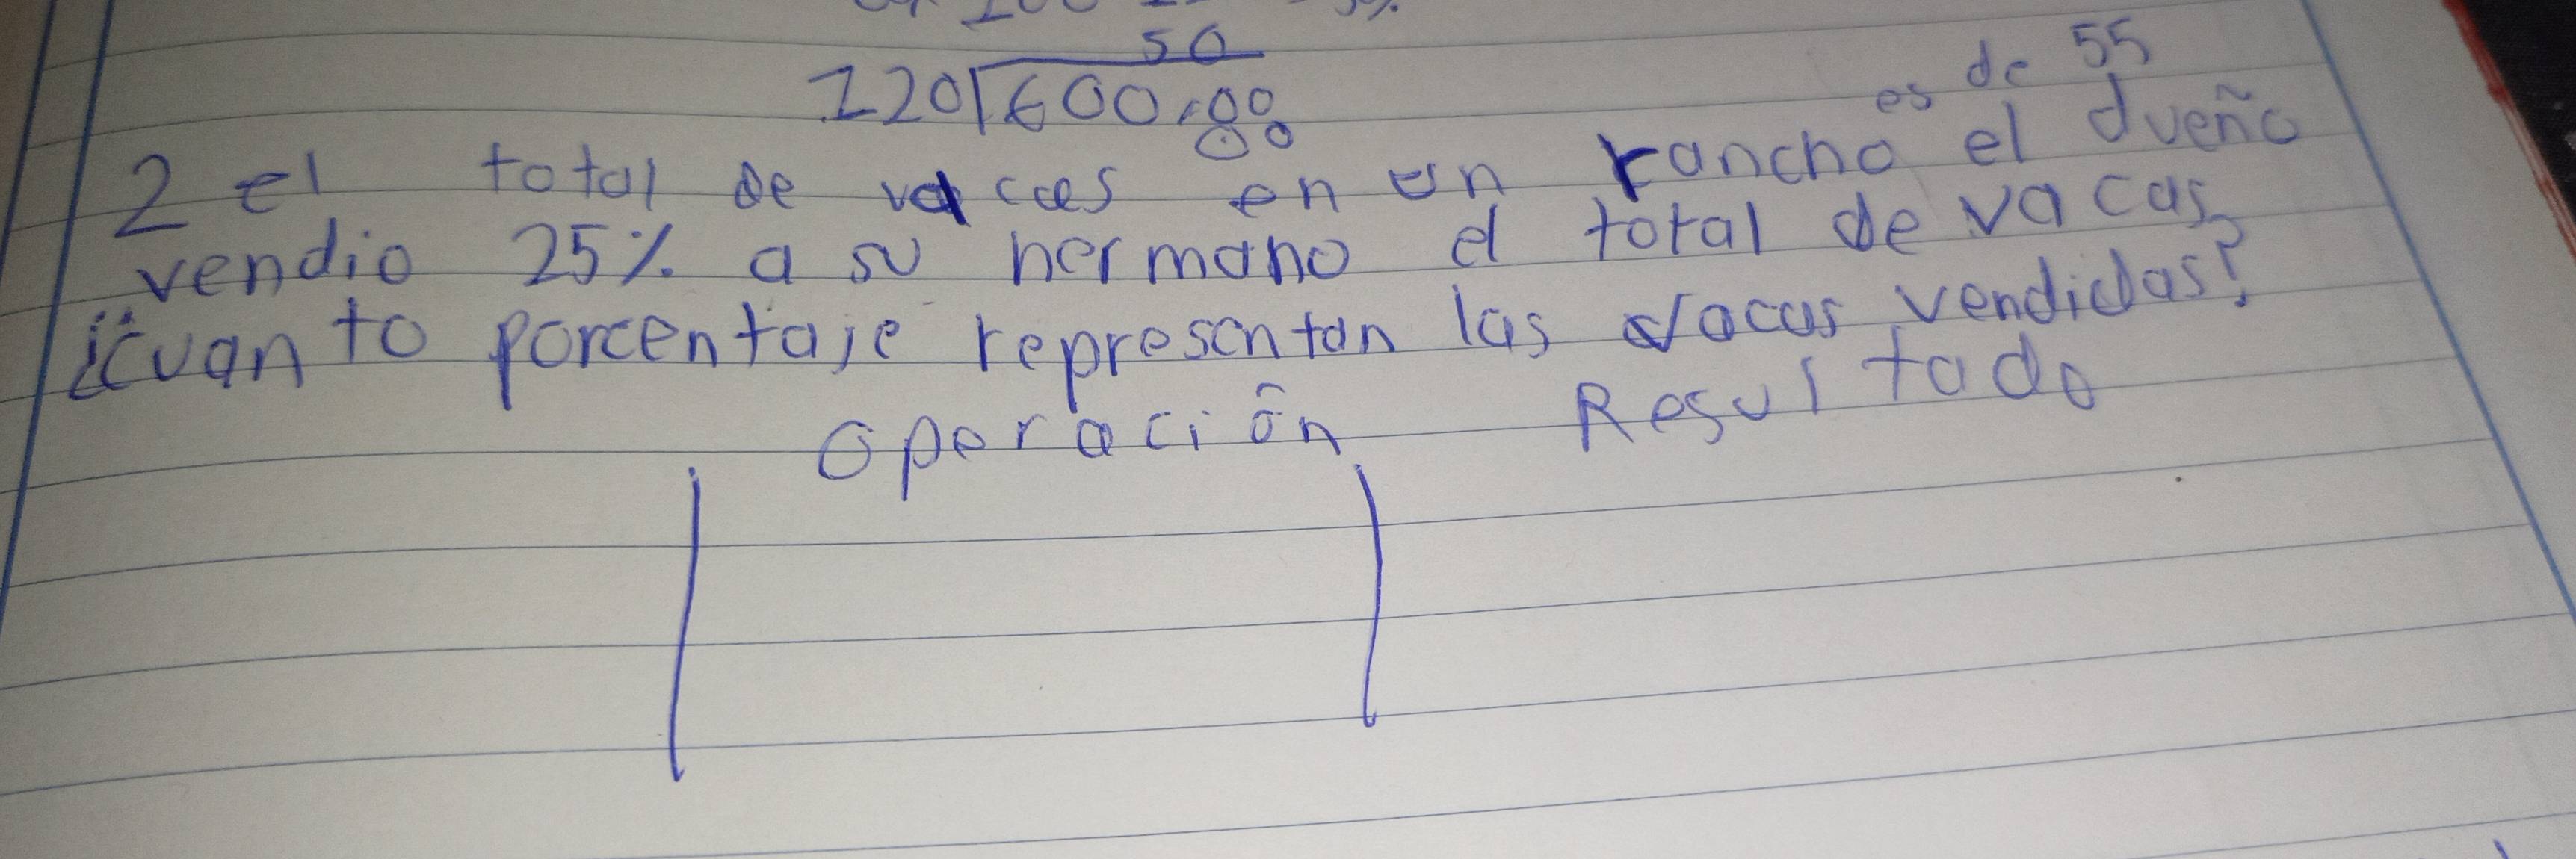 50
120 600.00
00
es de 55
2 el total de vacas en un rancho el dueño
vendio 25% a su hermano el total de vacas
¿cuanto porcentaje representan las vacas vendidas?
operación Resultado